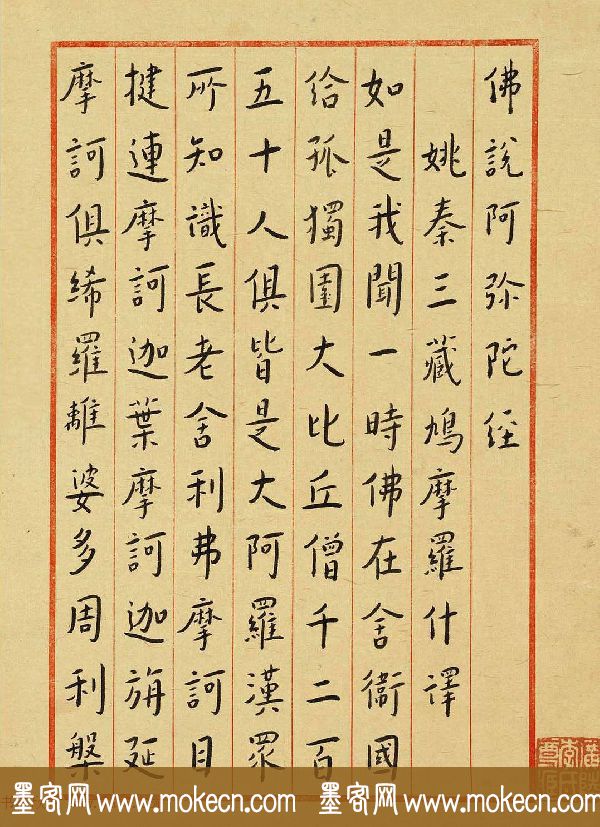 佛說阿弥陀經
姚秦三藏鳩摩羅什譯
如是我聞一時佛在舍衛國
給孤獨園大比丘僧千二百
五十人俱皆是大阿羅漢眾
所知識長老舍利弗摩訶目
揵連摩訶迦葉摩訶迦旃延
摩訶俱絺羅離婆多周利槃
墨客网 www.mokecn.com 墨客网 www.mokecn.com